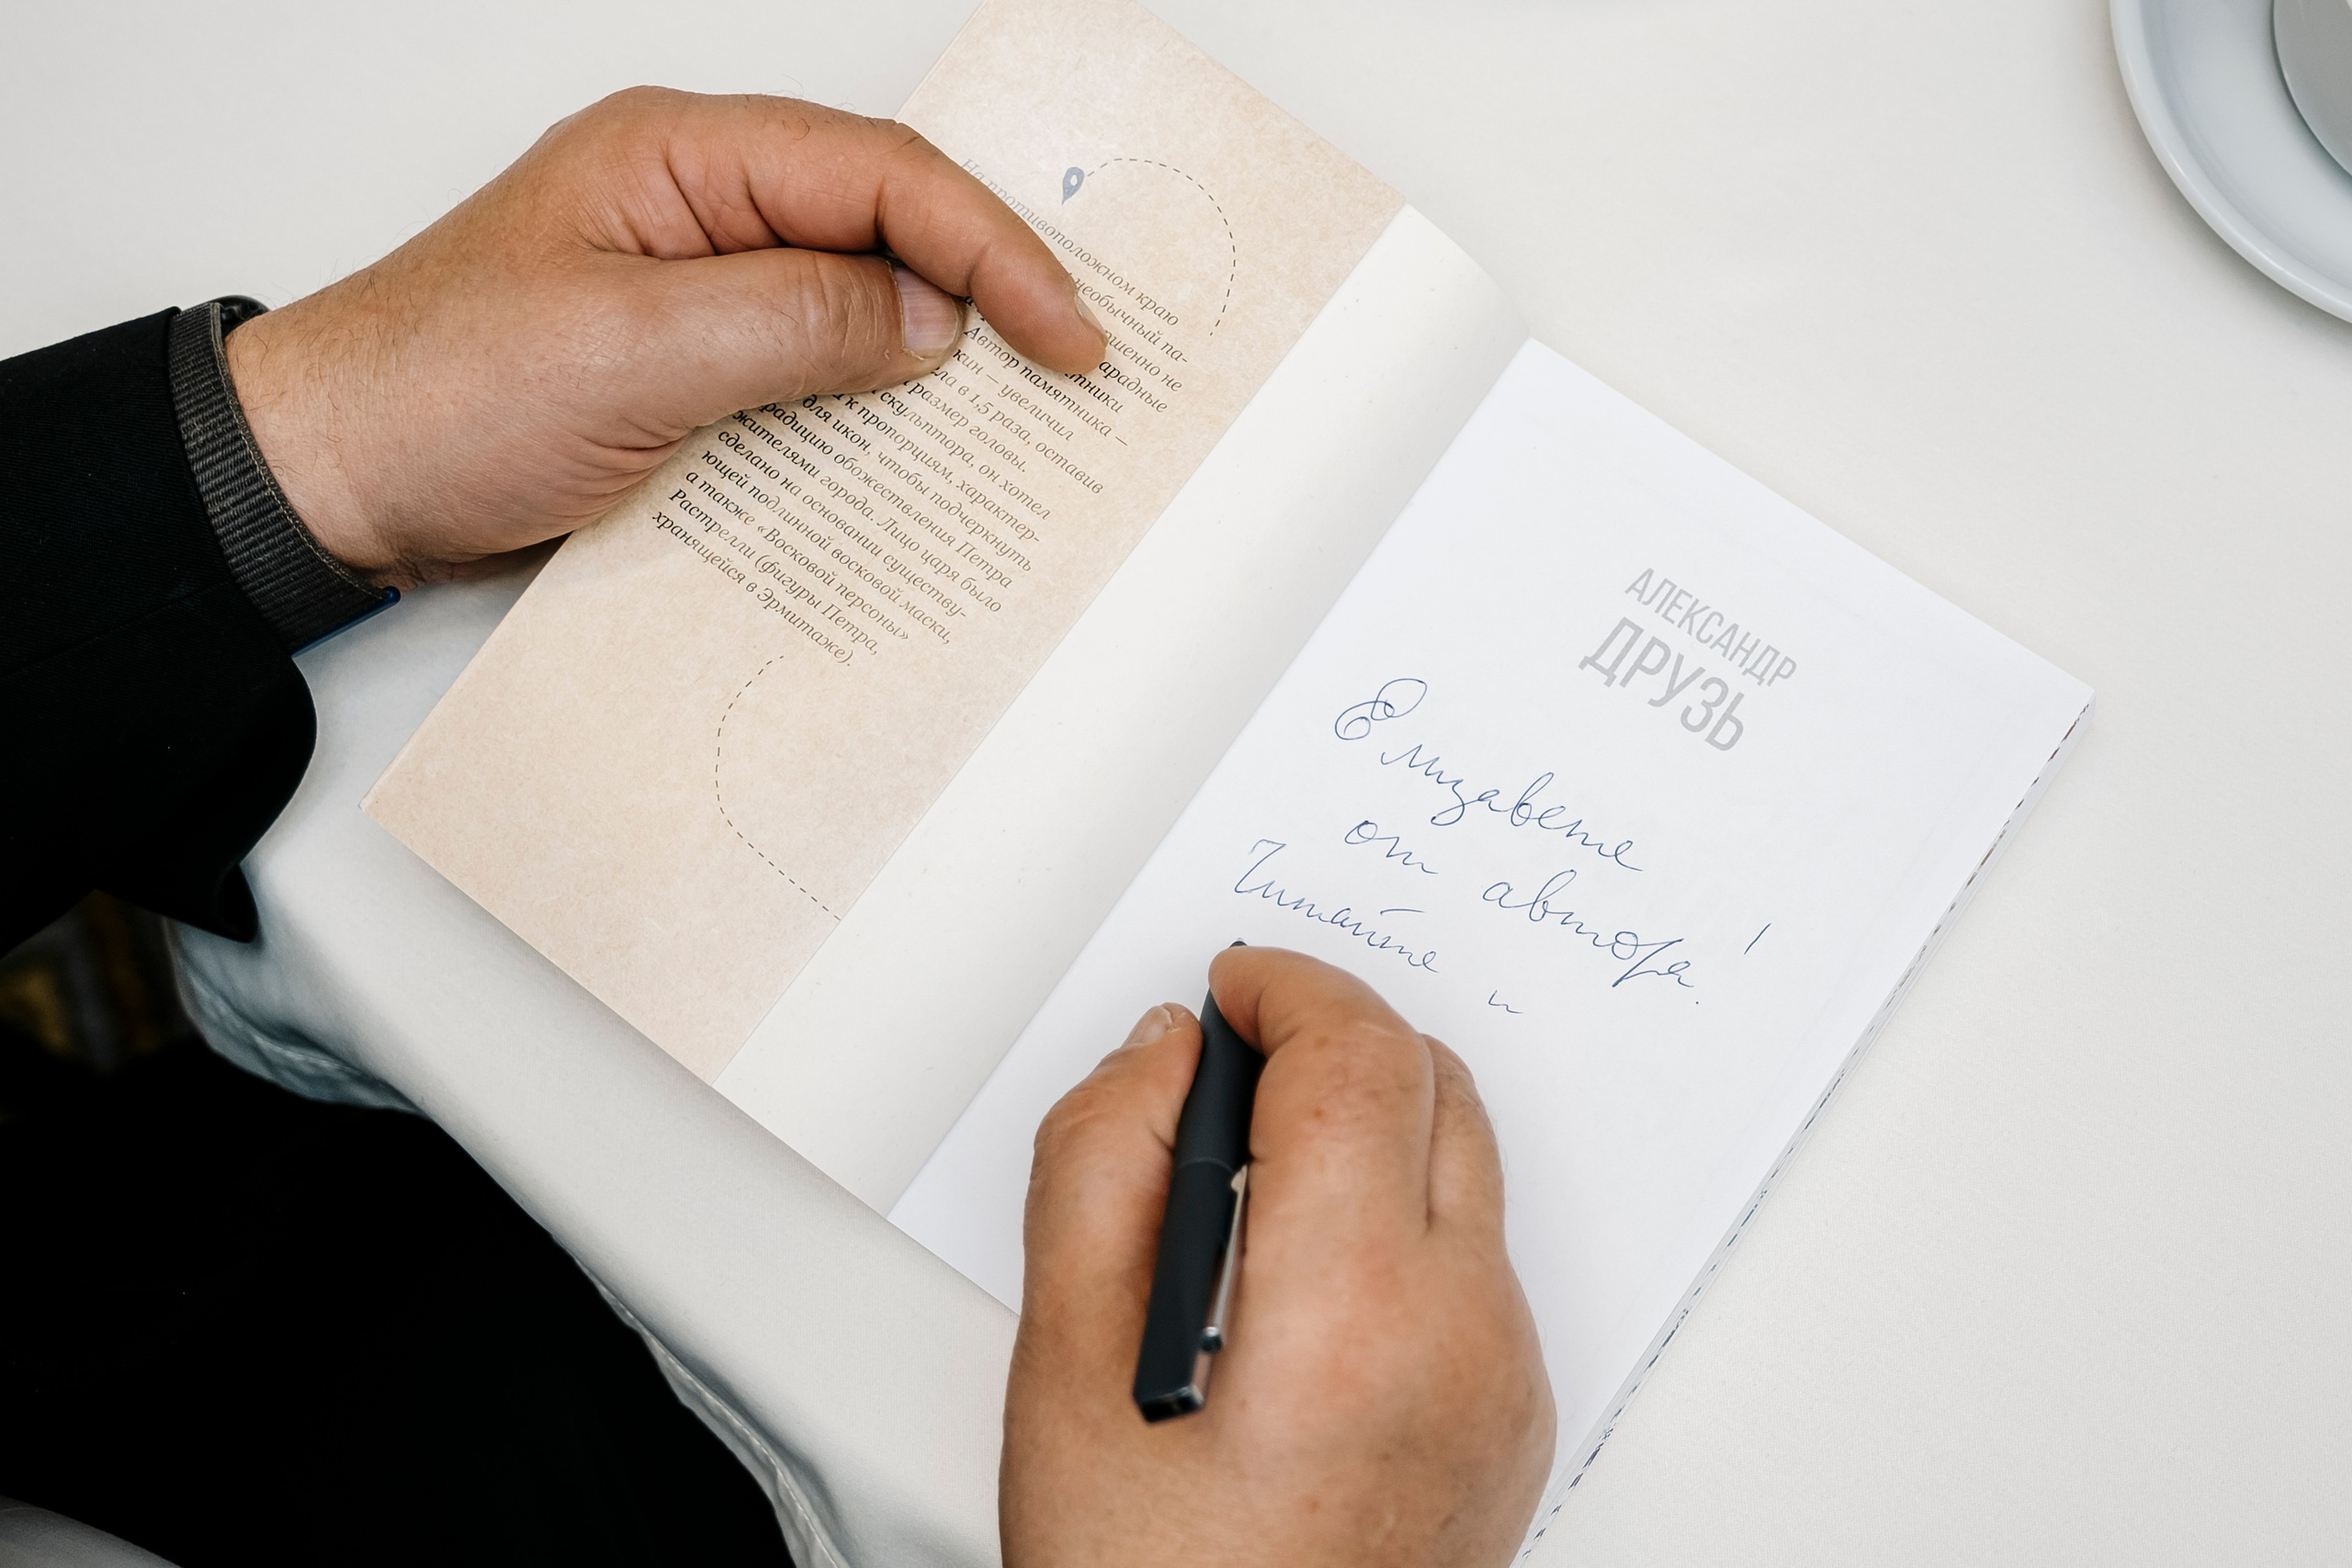 На противоположном краю
необычный па-
шенно не
арадные
тники
Автор памятника —
кин — увеличил
ла в 1,5 раза, оставив
размер головы.
скульптора, он хотел
к пропорциям, характер-
для икон, чтобы подчеркнуть
традицию обожествления Петра
жителями города. Лицо царя было
сделано на основании существу-
ющей подлинной восковой маски,
а также «Восковой персоны»
Растрелли (фигуры Петра,
хранящейся в Эрмитаже).
АЛЕКСАНДР
ДРУЗЬ
Елизавете
от автора!
Читайте и